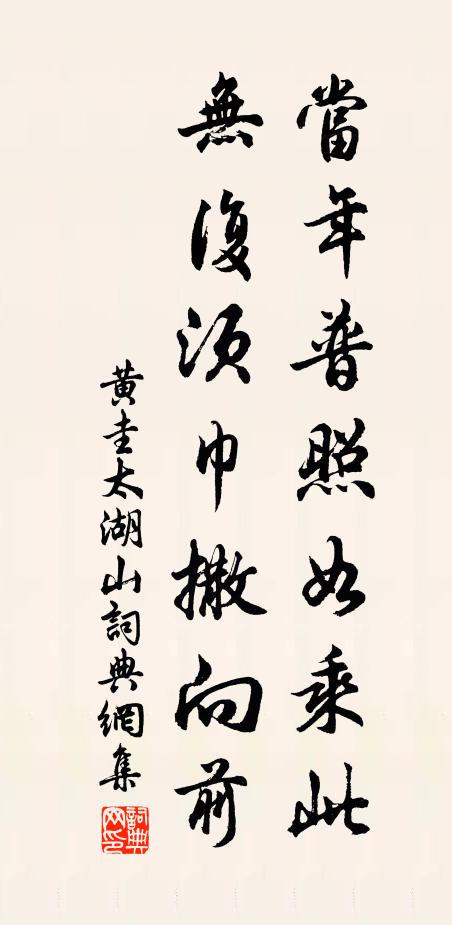 當年普照如乘此
無復須巾撒向前
黃圭太湖山詞典網集
詞典網印